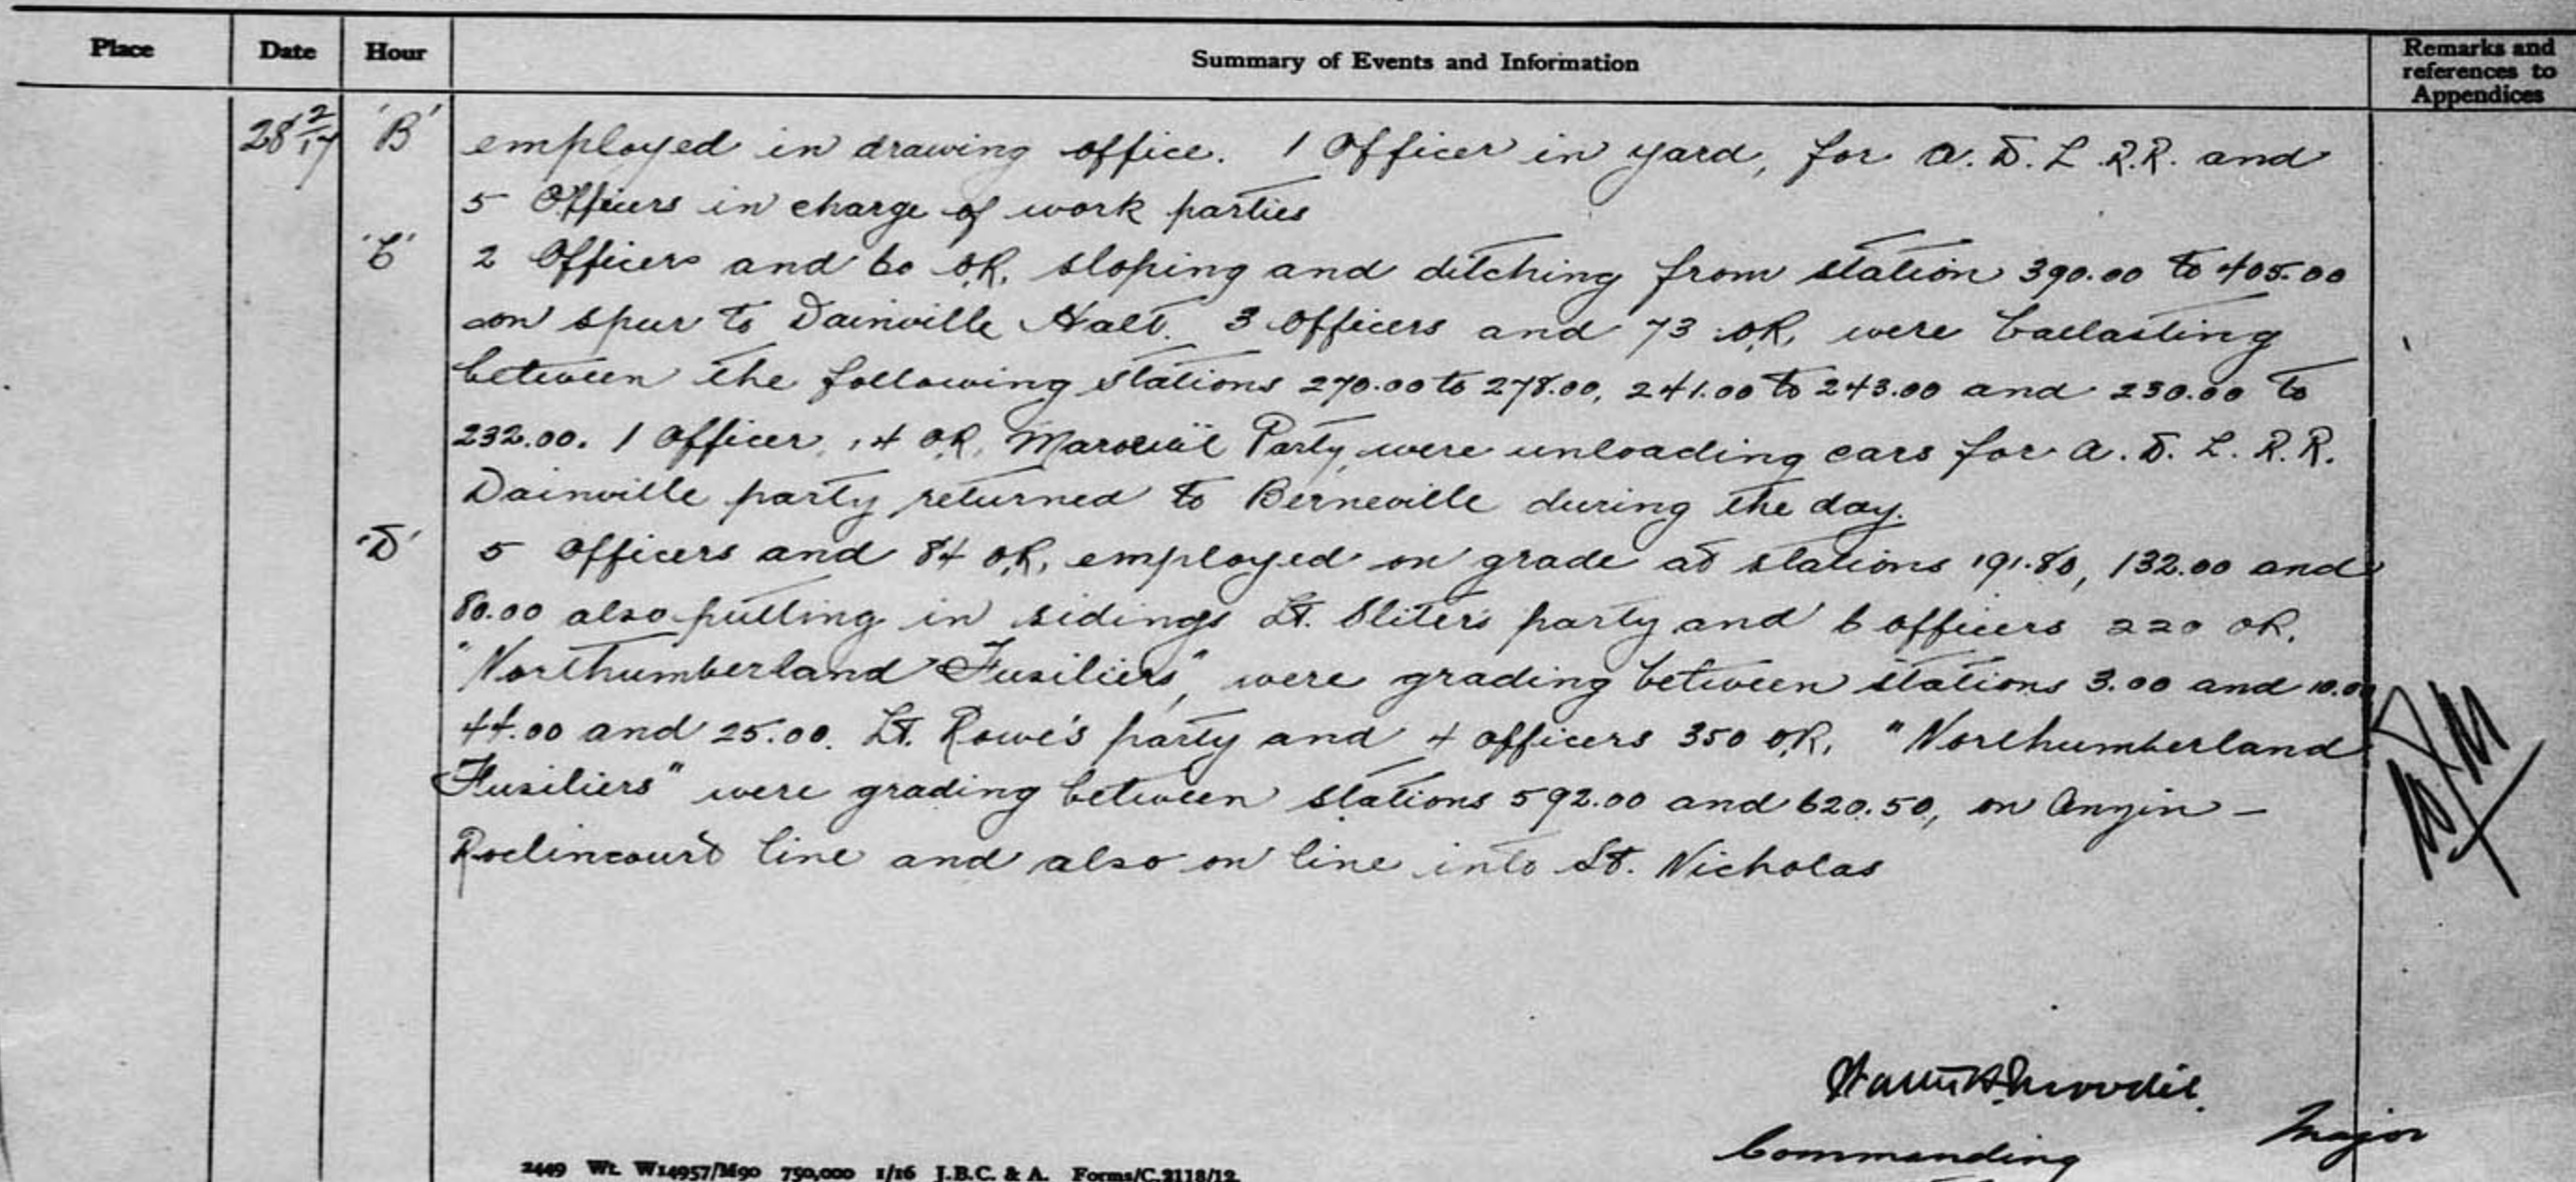 Place Date Hour Summary of Events and Information Remarks and references to Appendices
28 2/17 'B' employed in drawing office. 1 Officer in yard, for A. D. L. R.R. and
5 Officers in charge of work parties
'C' 2 Officers and 60 O.R. sloping and ditching from station 390.00 to 405.00
on spur to Dainville Halt. 3 Officers and 73 O.R. were ballasting
between the following stations 270.00 to 278.00, 241.00 to 243.00 and 230.00 to
232.00. 1 Officer, 14 O.R. Maroeuil Party, were unloading cars for A. D. L. R. R.
Dainville party returned to Berneville during the day.
'D' 5 Officers and 84 O.R. employed on grade at stations 191.80, 132.00 and
80.00 also putting in sidings Lt. Sliter's party and 6 officers 220 OR.
"Northumberland Fusiliers", were grading between stations 3.00 and 10.00
44.00 and 25.00. Lt. Rowe's party and 4 officers 350 O.R. "Northumberland
Fusiliers" were grading between stations 592.00 and 620.50, on Anzin -
Roclincourt line and also on line into St. Nicholas
Major
Commanding
2449 Wt. W14957/M90 750,000 1/16 J.B.C. & A. Forms/C.2118/12.